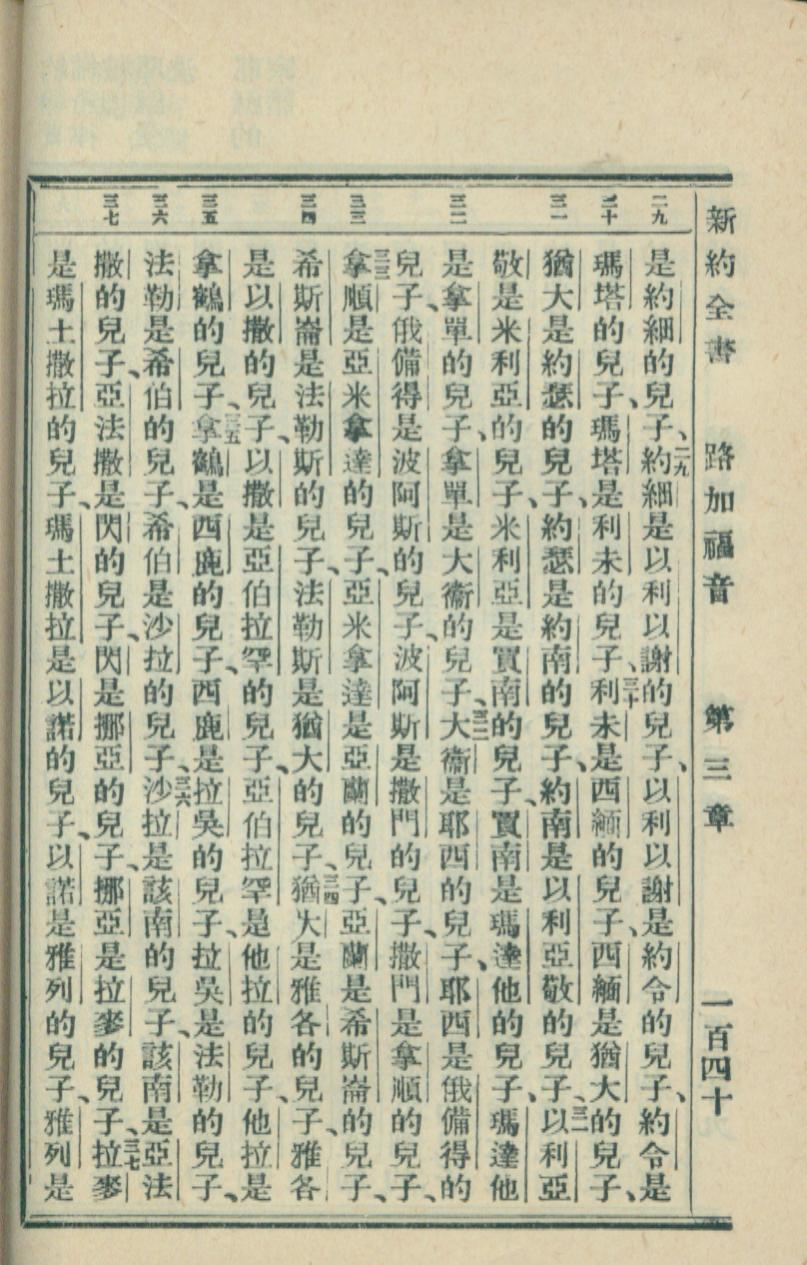 新約全書 路加福音 第三章 一百四十
二九 三十 三一 三二 三三 三四 三五 三六 三七
是約細的兒子、二九約細是以利以謝的兒子、以利以謝是約令的兒子、約令是
瑪塔的兒子、瑪塔是利未的兒子、三十利未是西緬的兒子、西緬是猶大的兒子、
猶大是約瑟的兒子、約瑟是約南的兒子、約南是以利亞敬的兒子、三一以利亞
敬是米利亞的兒子、米利亞是買南的兒子、買南是瑪達他的兒子、瑪達他
是拿單的兒子、拿單是大衞的兒子、三二大衞是耶西的兒子、耶西是俄備得的
兒子、俄備得是波阿斯的兒子、波阿斯是撒門的兒子、撒門是拿順的兒子、
三三拿順是亞米拿達的兒子、亞米拿達是亞蘭的兒子、亞蘭是希斯崙的兒子、
希斯崙是法勒斯的兒子、法勒斯是猶大的兒子、三四猶大是雅各的兒子、雅各
是以撒的兒子、以撒是亞伯拉罕的兒子、亞伯拉罕是他拉的兒子、他拉是
拿鶴的兒子、三五拿鶴是西鹿的兒子、西鹿是拉吳的兒子、拉吳是法勒的兒子、
法勒是希伯的兒子、希伯是沙拉的兒子、三六沙拉是該南的兒子、該南是亞法
撒的兒子、亞法撒是閃的兒子、閃是挪亞的兒子、挪亞是拉麥的兒子、三七拉麥
是瑪土撒拉的兒子、瑪土撒拉是以諾的兒子、以諾是雅列的兒子、雅列是